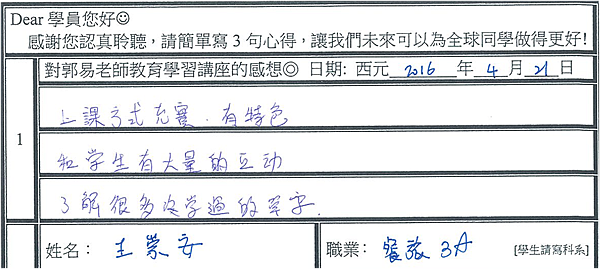 Dear 學員您好☺
感謝您認真聆聽，請簡單寫 3 句心得，讓我們未來可以為全球同學做得更好!
對郭易老師教育學習講座的感想◎ 日期: 西元 2016 年 4 月 21 日
1
上課方式充實．有特色
和学生有大量的互动
了解很多沒学過的單字.
姓名： 王崇安 職業： 餐旅 3A [學生請寫科系]